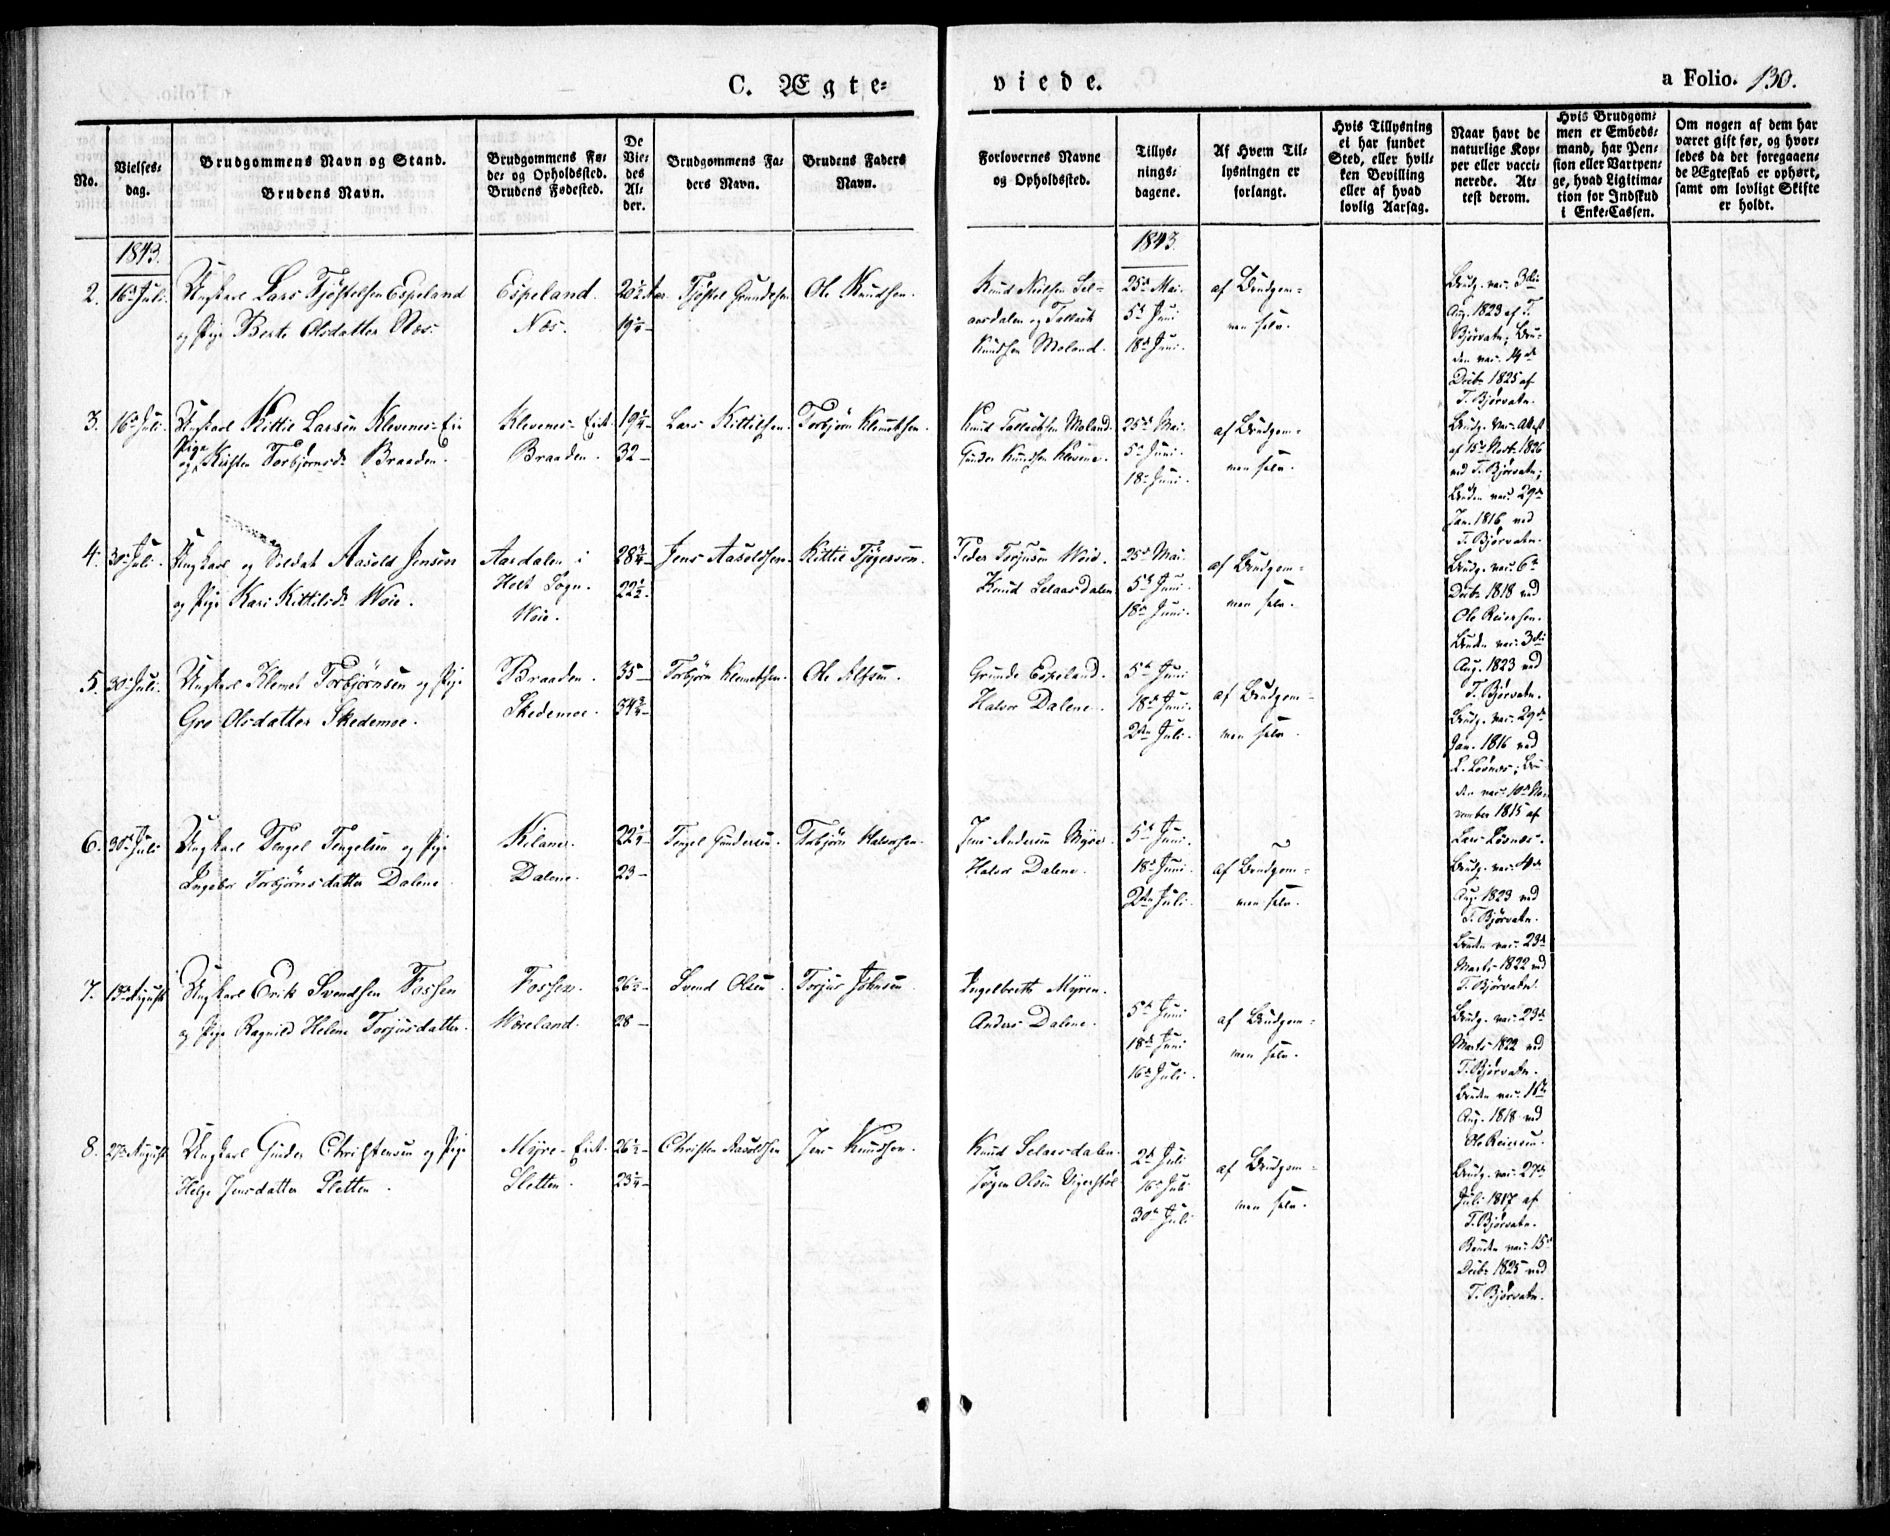 C. Ægte=
viede.
a Folio. 130.
No.
Vielses-
dag.
Brudgommens Navn og Stand.
Brudens Navn.
Brudgommens Fø-
de- og Opholdssted.
Brudens Fødested.
De
Vie-
des
Al-
der.
Brudgommens Fa-
ders Navn.
Brudens Faders
Navn.
Forlovernes Navne
og Opholdssted.
Tillys-
nings-
dagene.
Af Hvem Til-
lysningen er
forlangt.
Hvis Tillysning
ei har fundet
Sted, eller hvil-
ken Bevilling
eller af hvad
lovlig Aarsag.
Naar havt de
naturlige Kop-
per eller vacci-
nerede. At-
test derom.
Hvis Brudgom-
men er Embeds-
mand, har Pen-
sion eller Vartpen-
ge, hvad Ligitima-
tion for Indskud
i Enke-Cassen.
Om nogen af dem har
været gift før, og hvor-
ledes da det foregaaen-
de Ægteskab er ophørt,
samt om lovligt Skifte
er holdt.
1843.
1843.
2. 16de Juli. Ungkarl Lars Tjøstelsen Espeland
og Pige Berte Olsdatter Næs.
Espeland.
Næs.
20½ Aar.
19¼
Tjøstel Grundesen
Ole Knudsen.
Knud Nielsen Sel-
aasdalen og Tallack
Knudsen Moland.
25de Mai.
5te Juni
18de Juni.
af Brudgom-
men selv.
Brudg. vac. 3die
Aug. 1823 af T.
Bjørvatn; Bru-
den vac. 14de
Decbr 1825 af
T. Bjørvatn.
3. 16de Juli. Ungkarl Kittil Larsen Klevenes-Eie
og Pige Kirsten Torbjørnsdr Braaden.
Klevenes-Eiet.
Braaden.
19¼
32
Lars Kittilsen.
Torbjørn Klemetsen.
Knud Tallachsen Moland
Gunder Knudsen Klevene.
25de Mai.
5te Juni.
18de Juni.
af Brudgom-
men selv.
Brudg. vac. Attest
af 15de Novbr. 1826
ved T. Bjørvatn;
Bruden vac. 29de
Jan. 1816 ved
T. Bjørvatn.
4. 30te Juli. Ungkarl og Soldat Aasold Jensen
og Pige Kari Kittilsdr Woie.
Aardalen i
Holt Sogn.
Woie.
28¾
22½
Jens Aasoldsen.
Kittil Tjøgersen.
Peder Terjesen Woie.
Knud Selaasdalen
25de Mai.
5te Juni.
18de Juni.
af Brudgom-
men selv.
Brudg. vac. 6te
Decbr 1818 ved
Ole Reiersen.
Bruden vac. 3die
Aug. 1823 ved
T. Bjørvatn.
5. 30te Juli. Ungkarl Klemet Torbjørnsen og Pige
Gro Olsdatter Skedemoe.
Braaden.
Skedemoe.
35
34¾
Torbjørn Klemetsen.
Ole Alfsen.
Grunde Espeland.
Halvor Dalene.
5te Juni
18de Juni.
2den Juli.
af Brudgom-
men selv.
Brudg. vac. 29de
Jan. 1816 ved
L. Løsnæs; Bru-
den vac. 10de No-
vember 1815 af
Lars Løsnæs.
6. 30te Juli Ungkarl Tengel Tengelsen og Pige
Ingebor Torbjørnsdatter Dalene.
Kilane.
Dalene.
22¼
23
Tengel Gundersen.
Torbjørn Halvorsen.
Jens Andersen Myre.
Halvor Dalene.
5te Juni.
18de Juni.
2den Juli.
af Brudgom-
men selv.
Brudg. vac. 4de
Aug. 1823 ved
T. Bjørvatn.
Bruden vac. 23de
Marts 1822 ved
T. Bjørvatn.
7. 13de August Ungkarl Erik Svendsen Fossen
og Pige Ragnild Helene Torjusdatter.
Fossen.
Woreland.
26½
28
Svend Olsen.
Torjus Johnsen
Ingelbreth Myren.
Anders Dalene.
5te Juni
18de Juni
16de Juli.
af Brudgom-
men selv.
Brudg. vac. 23de
Marts 1822 ved
T. Bjørvatn.
Bruden vac. 11te
Aug. 1818 ved
Ole Reiersen.
8. 27de August Ungkarl Gunder Christensen og Pige
Helge Jensdatter Sletten.
Myre-Eiet.
Sletten.
26½
23¼
Christen Aasoldsen
Jens Knudsen.
Knud Selaasdalen.
Jørgen Olsen Ugerstøl
2den Juli
16de Juli
30te Juli
af Brudgom-
men selv.
Brudg. vac. 27de
Juli 1817 af
T. Bjørvatn.
Bruden vac. 15de
Decbr 1825 ved
T. Bjørvatn.